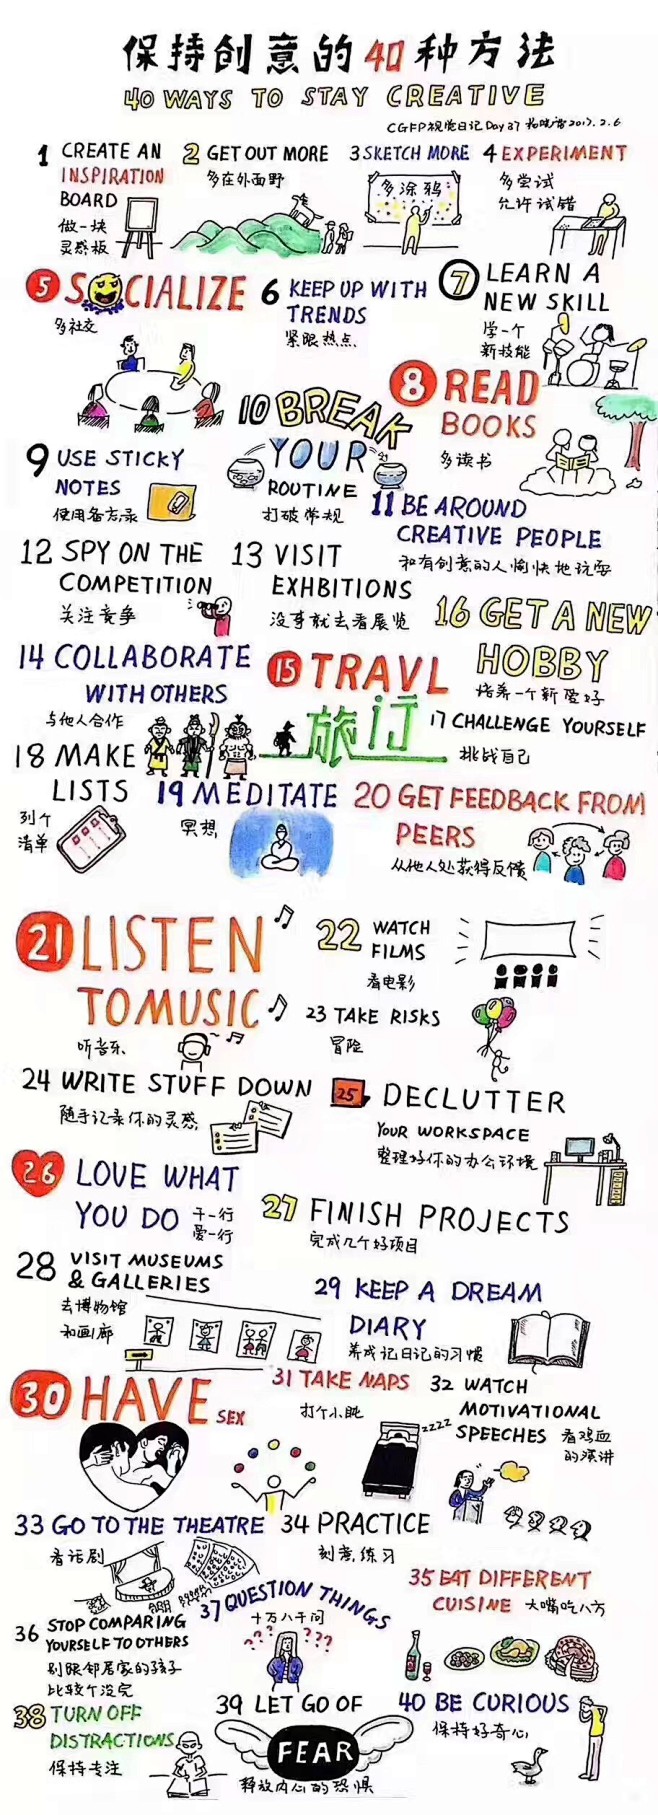 保持创意的40种方法
40 WAYS TO STAY CREATIVE
CGFP视觉日记Day37 2017.2.6
1 CREATE AN
INSPIRATION
BOARD
做一块
灵感板
2 GET OUT MORE
多在外面野
3 SKETCH MORE
多涂鸦
4 EXPERIMENT
多尝试
允许试错
5 SOCIALIZE
多社交
6 KEEP UP WITH
TRENDS
紧跟热点
7 LEARN A
NEW SKILL
学一个
新技能
8 READ
BOOKS
多读书
9 USE STICKY
NOTES
使用备忘录
10 BREAK
YOUR
ROUTINE
打破常规
11 BE AROUND
CREATIVE PEOPLE
和有创意的人愉快地玩耍
12 SPY ON THE
COMPETITION
关注竞争
13 VISIT
EXHBITIONS
没事就去看展览
14 COLLABORATE
WITH OTHERS
与他人合作
15 TRAVL
旅行
16 GET A NEW
HOBBY
培养一个新爱好
17 CHALLENGE YOURSELF
挑战自己
18 MAKE
LISTS
列个
清单
19 MEDITATE
冥想
20 GET FEEDBACK FROM
PEERS
从他人处获得反馈
21 LISTEN
TO MUSIC
听音乐
22 WATCH
FILMS
看电影
23 TAKE RISKS
冒险
24 WRITE STUFF DOWN
随手记录你的灵感
25 DECLUTTER
YOUR WORKSPACE
整理好你的办公环境
26 LOVE WHAT
YOU DO
干一行
爱一行
27 FINISH PROJECTS
完成几个好项目
28 VISIT MUSEUMS
& GALLERIES
去博物馆
和画廊
29 KEEP A DREAM
DIARY
养成记日记的习惯
30 HAVE SEX
31 TAKE NAPS
打个小盹
zzzz
32 WATCH
MOTIVATIONAL
SPEECHES
看鸡血
的演讲
33 GO TO THE THEATRE
看话剧
34 PRACTICE
刻意练习
35 EAT DIFFERENT
CUISINE
大嘴吃八方
36 STOP COMPARING
YOURSELF TO OTHERS
别跟邻居家的孩子
比较个没完
37 QUESTION THINGS
十万八千问
??? ???
38 TURN OFF
DISTRACTIONS
保持专注
39 LET GO OF
FEAR
释放内心的恐惧
40 BE CURIOUS
保持好奇心